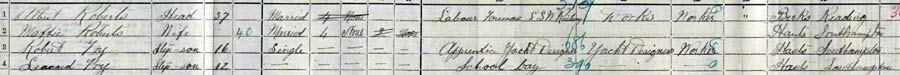 1 Albert Roberts Head 37 Married 4 None Labour Foreman L.S.W. Railway Works Worker Berks Reading
2 Roberts Wife 40 Married 4 None 2 Hants Southampton
3 Robert Foy Step-son 16 Single Apprentice Yacht Designer Yacht Designers Worker Hants Southampton
4 Leonard Foy Step-son 12 School Boy 390 0 Hants Southampton